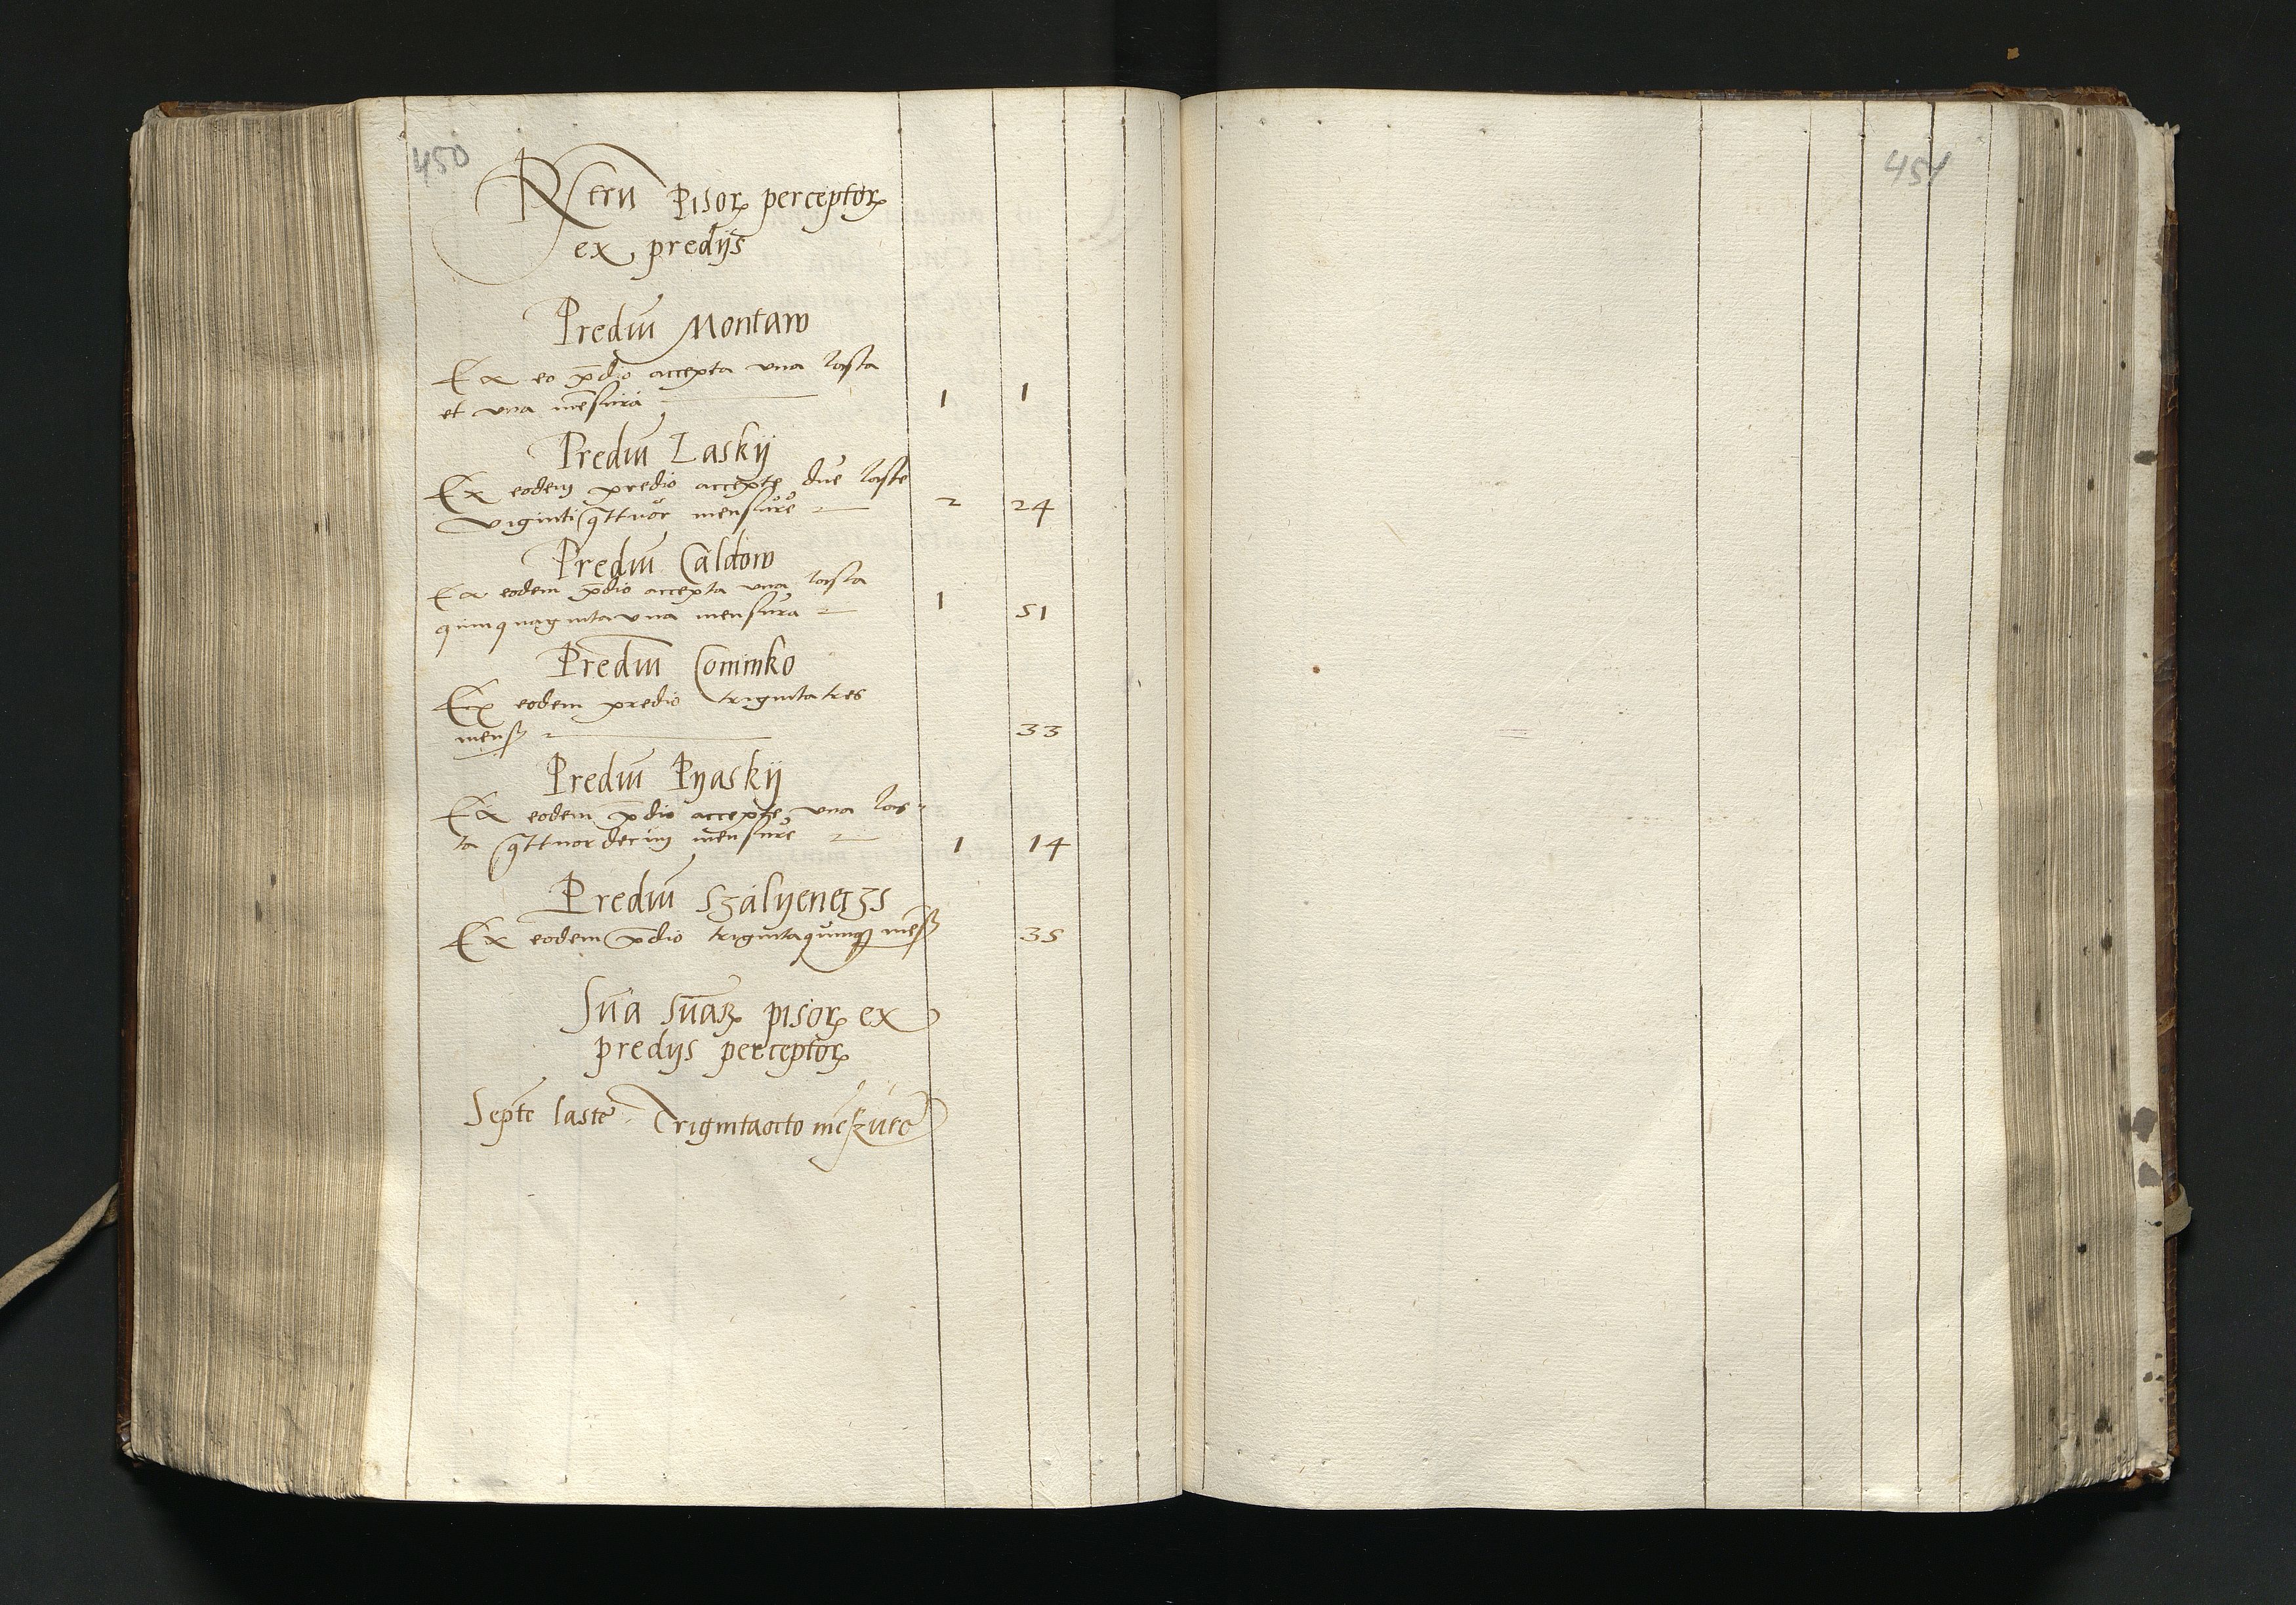 450
Rctrū pisoꝝ perceptoꝝ
ex predijs
Prediū Montaw
Ex eo p̄dio accepta vna lasta
et vna mēsura 1 1
Prediū Laskij
Ex eodem predio accepte due laste
viginti qttuor mensure 2 24
Prediū Caldow
Ex eodem p̄dio accepta vna lasta
quinquagintavna mensura 1 51
Prediū Cominko
Ex eodem predio trigintatres
mens 33
Prediū Pyaskij
Ex eodem p̄dio accepte vna las-
ta qttuordecim mensure 1 14
Prediū Szalyenetzs
Ex eodem p̄dio trigintaquinqꝫ mēs 35
Sūa sūaꝝ pisoꝝ ex
predijs perceptoꝝ
Septē laste Trigintaocto mēszure
451